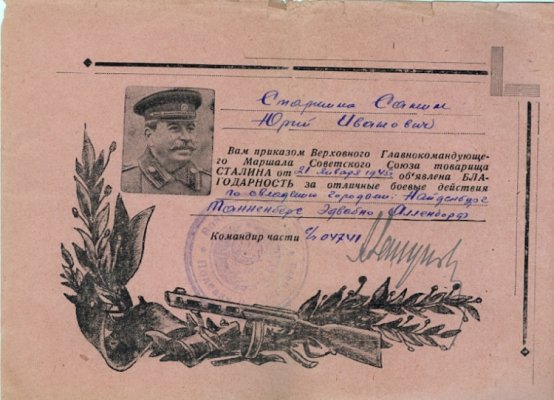 Старшина Санин
Юрий Иванович
Вам приказом Верховного Главнокомандующе-
го Маршала Советского Союза товарища
СТАЛИНА от 21 января 1945г. об'явлена БЛА-
ГОДАРНОСТЬ за отличные боевые действия
по овладению городами: Найденбург
Танненберг Едвабно Алленборф
Командир части п/п 04741